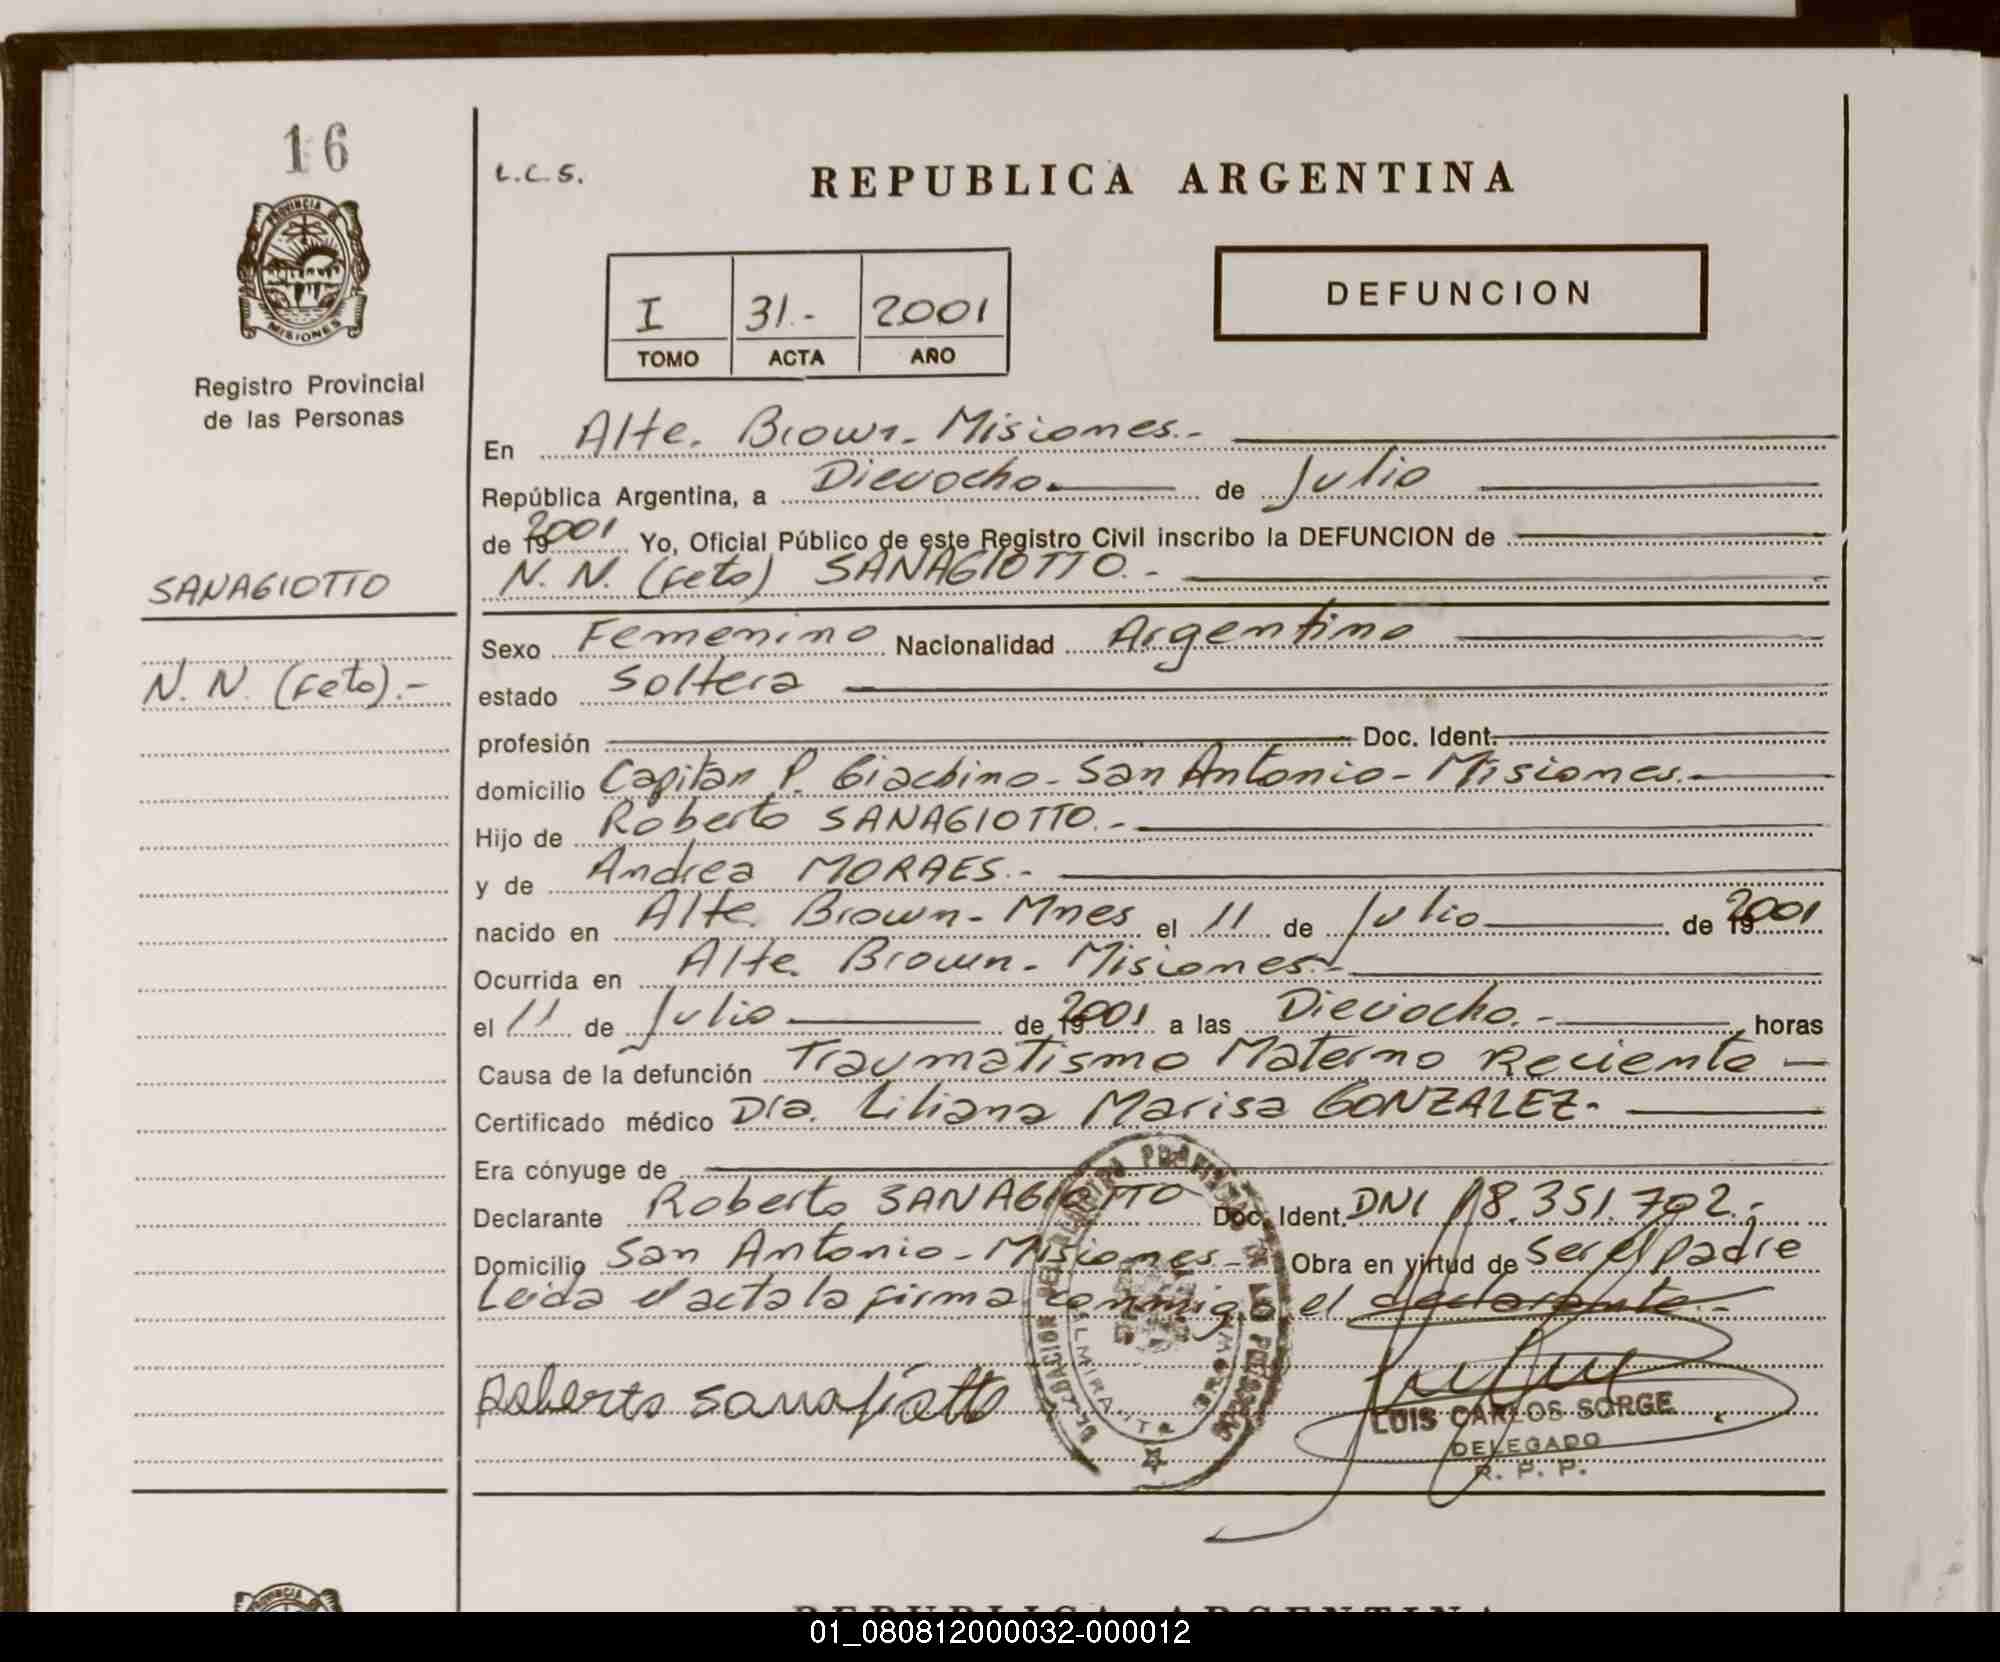 16
PROVINCIA DE
MISIONES
Registro Provincial
de las Personas
SANAGIOTTO
N. N. (feto).-
L.C.S.
REPUBLICA ARGENTINA
I 31.- 2001
TOMO ACTA AÑO
DEFUNCION
En Alte. Brown - Misiones.-
República Argentina, a Dieciocho. de Julio
de 192001 Yo, Oficial Público de este Registro Civil inscribo la DEFUNCION de
N. N. (feto) SANAGIOTTO.-
Sexo Femenino Nacionalidad Argentino
estado Soltera
profesión Doc. Ident.
domicilio Capitan P. Giachino - San Antonio - Misiones.-
Hijo de Roberto SANAGIOTTO.-
y de Andrea MORAES.-
nacido en Alte. Brown - Mnes el 11 de Julio de 192001
Ocurrida en Alte. Brown - Misiones.-
el 11 de Julio de 192001 a las Dieciocho.- horas
Causa de la defunción Traumatismo Materno Reciente -
Certificado médico Dra. Liliana Marisa GONZALEZ-
Era cónyuge de
Declarante Roberto SANAGIOTTO Doc. Ident. DNI 18.351.702.-
Domicilio San Antonio - Misiones - Obra en virtud de Ser el padre
Leida el acta la firma conmigo el declarante.-
Roberto Sanagiotto
DELEGACION DEL REGISTRO PROVINCIAL DE LAS PERSONAS
ALMIRANTE BROWN
LUIS CARLOS SORGE
DELEGADO
R. P. P.
PROVINCIA
REPUBLICA ARGENTINA
01_080812000032-000012